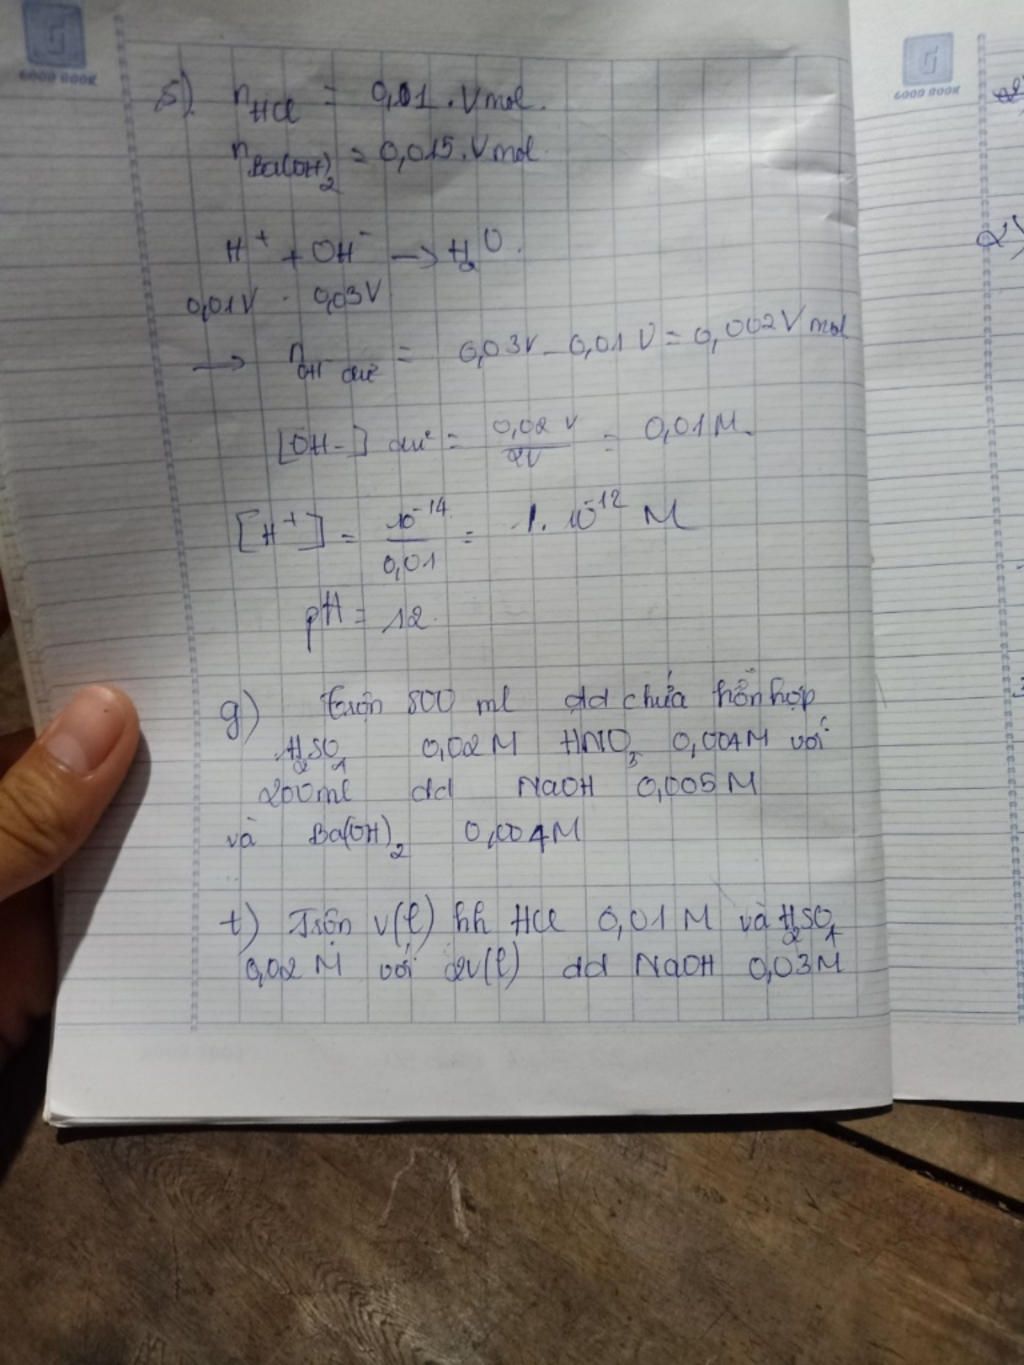 GOOD BOOK
GOOD BOOK
5) nHCl = 0,01 . V mol.
nBa(OH)2 = 0,015 . V mol
H+ + OH- → H2O.
0,01V . 0,03V
→ nOH- dư = 0,03V - 0,01V = 0,002V mol
[OH-] dư = 0,02V / 2V = 0,01M.
[H+] = 10^-14 / 0,01 = 1. 10^-12 M
pH = 12.
g) Trộn 800 ml dd chứa hỗn hợp
H2SO4 0,02M HNO3 0,004M với
200ml dd NaOH 0,005M
và Ba(OH)2 0,004M
t) Trộn v(l) hh HCl 0,01M và H2SO4
0,02M với 2v(l) dd NaOH 0,03M